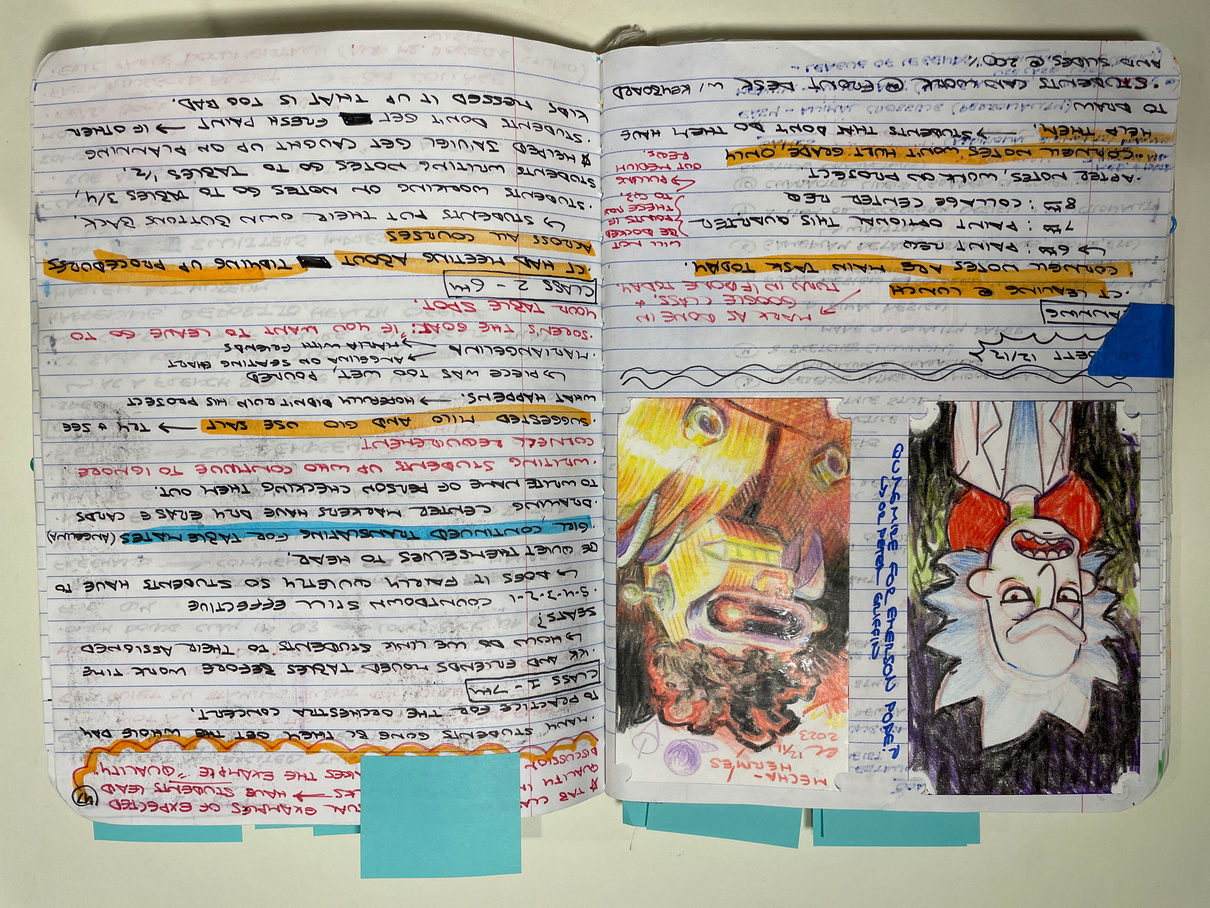 QUAGMIRE FOR EMERSON POKE.?
↳ OR PETER GRIFFIN
MECHA-
HERMES
12/14
2023
DETT 12/12
ANNING
·CT LEAVING @ LUNCH
MARK AS DONE IN
GOOGLE CLASS, &
TURN IN IF DONE TODAY.
CORNELL NOTES ARE MAIN TASK TODAY.
↳ 6TH : PAINT REQ
7TH : PAINT OPTIONAL THIS QUARTER
8TH : COLLAGE CENTER REQ
WILL NOT
BE DOCKED
POINTS IF
THESE
TO Q3.
→ PULLING
OUT MEDIUM
REQS.
·AFTER NOTES, WORK ON PROJECT
CORNELL NOTES WON'T HURT GRADE, ONLY
HELP THEM. → STUDENTS THAT DON'T DO THEM HAVE
TO DRAW
·STUDENTS CAN WORK @ FRONT DESK W/ KEYBOARD
AND SLIDES @ 200%
147
EXAMPLES OF EXPECTED
QUALITY IN → HAVE STUDENTS LEAD
DISCUSSION THE EXAMPLE "QUALITY"
·MANY STUDENTS GONE BC THEY GET THE WHOLE DAY
TO PRACTICE FOR THE ORCHESTRA CONCERT.
CLASS 1 - 7TH
·KK AND FRIENDS MOVED TABLES BEFORE WORK TIME
↳ HOW DO WE LINK STUDENTS TO THEIR ASSIGNED
SEATS?
·5-4-3-2-1 COUNTDOWN STILL EFFECTIVE
↳ DOES IT FAIRLY QUIETLY SO STUDENTS HAVE TO
BE QUIET THEMSELVES TO HEAR.
GIRL CONTINUED TRANSLATING FOR TABLE MATES (ANGELINA)
·DRAWING CENTER MARKERS HAVE DRY ERASE CARDS
TO WRITE NAME OF PERSON CHECKING THEM OUT.
·WRITING STUDENTS UP WHO CONTINUE TO IGNORE
CORNELL REQUIREMENT
SUGGESTED MILO AND GIO USE SALT → TRY & SEE
WHAT HAPPENS. → HOPEFULLY DIDN'T RUIN HIS PROJECT
↳ PIECE WAS TOO WET, POURED
·MARIANGELINA → ANGELINA ON SEATING CHART
→ MARIA WITH FRIENDS
·SOREN'S THE GOAT: "IF YOU WANT TO LEAVE GO TO
YOUR TABLE SPOT.
CLASS 2 - 6TH
·CT HAD MEETING ABOUT TIDYING UP PROCEDURES
ACROSS ALL COURSES
↳ STUDENTS PUT THEIR OWN BUTTONS BACK.
·STUDENTS WORKING ON NOTES GO TO TABLES 3/4
STUDENTS WRITING NOTES GO TO TABLES 1/2
☆ HELPED JAVIEL GET CAUGHT UP ON PLANNING
·STUDENTS DON'T GET FRESH PAINT → IF OTHER
KIDS MESSED IT UP THAT IS TOO BAD.